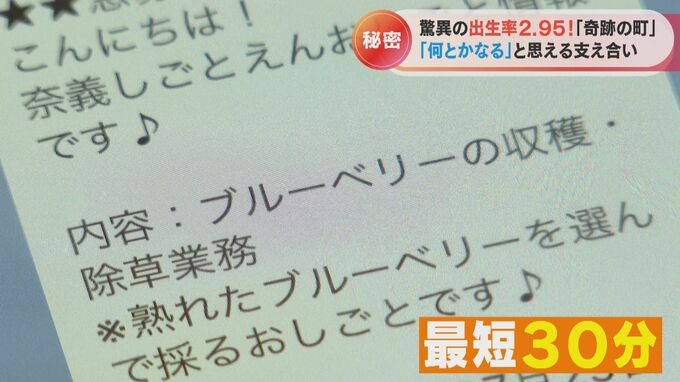 秘密
驚異の出生率2.95!「奇跡の町」
「何とかなる」と思える支え合い
こんにちは!
奈義しごとえんお
です♪
内容:ブルーベリーの収穫・
除草業務
※熟れたブルーベリーを選ん
で採るおしごとです♪
最短30分